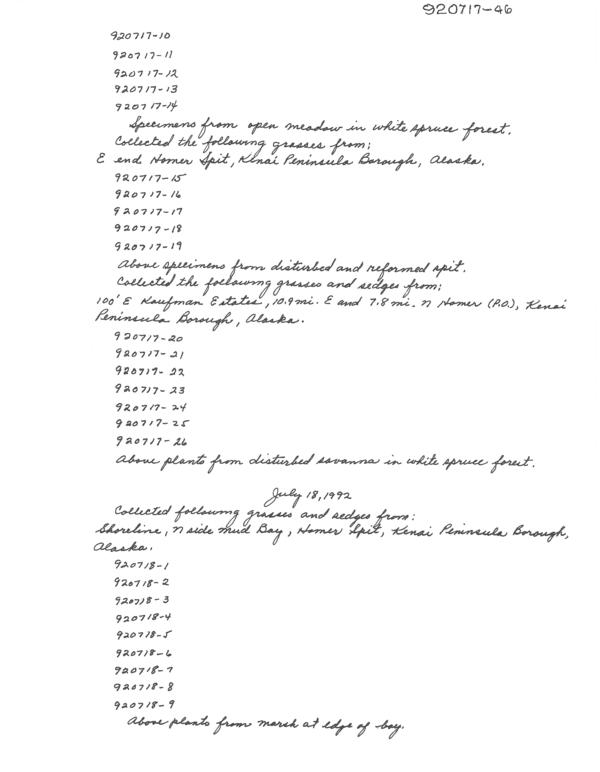 920717-46
920717-10
920717-11
920717-12
920717-13
920717-14
Specimens from open meadow in white spruce forest.
Collected the following grasses from;
E end Homer Spit, Kenai Peninsula Borough, Alaska.
920717-15
920717-16
920717-17
920717-18
920717-19
Above specimens from disturbed and reformed spit.
Collected the following grasses and sedges from;
100' E Kaufman Estates, 10.9 mi. E and 7.8 mi. N Homer (P.O.), Kenai
Peninsula Borough, Alaska.
920717-20
920717-21
920717-22
920717-23
920717-24
920717-25
920717-26
Above plants from disturbed savanna in white spruce forest.
July 18, 1992
Collected following grasses and sedges from:
Shoreline, N side Mud Bay, Homer Spit, Kenai Peninsula Borough,
Alaska.
920718-1
920718-2
920718-3
920718-4
920718-5
920718-6
920718-7
920718-8
920718-9
Above plants from marsh at edge of bay.